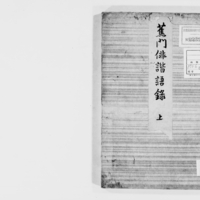 蕉門俳諧語録 上